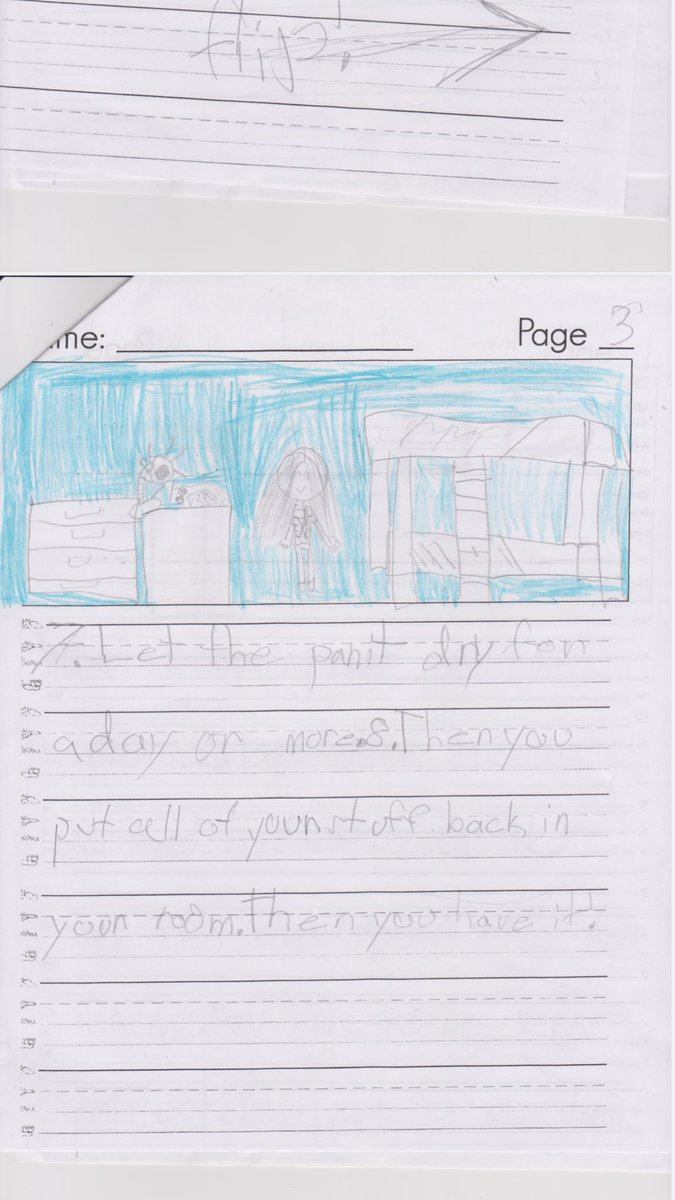 flip!
Name:
Page 3
7. Let the panit dry for
a day or more. 8. Then you
put all of your stoff back in
your room. Then you have it!